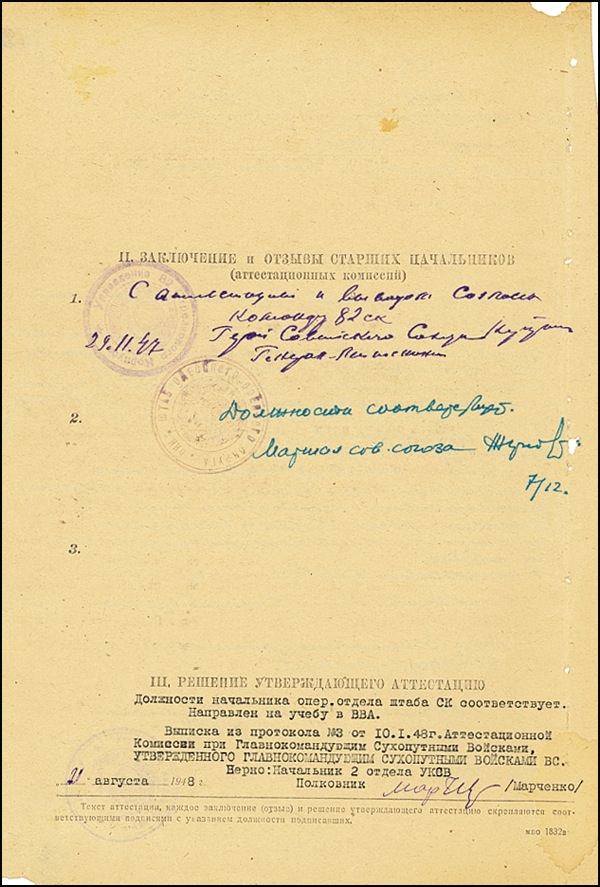 II. ЗАКЛЮЧЕНИЕ и ОТЗЫВЫ СТАРШИХ НАЧАЛЬНИКОВ
(аттестационных комиссий)
1.
С аттестацией и выводом согласен
Командир 82 ск
29.11.47
Герой Советского Союза
Генерал-Лейтенант
ШТАБ ОДЕССКОГО ВОЕННОГО ОКРУГА
2.
Должности соответствует.
Маршал сов. союза Жуков
7/12.
3.
III. РЕШЕНИЕ УТВЕРЖДАЮЩЕГО АТТЕСТАЦИЮ
Должности начальника опер.отдела штаба СК соответствует.
Направлен на учебу в ВВА.
Выписка из протокола №3 от 10.I.48г.Аттестационной
Комиссии при Главнокомандующим Сухопутными Войсками,
УТВЕРЖДЕННОГО ГЛАВНОКОМАНДУЮЩИМ СУХОПУТНЫМИ ВОЙСКАМИ ВС.
Верно:Начальник 2 отдела УКСВ
21 августа 1948 г.
Полковник Марченко /Марченко/
Текст аттестации, каждое заключение (отзыв) и решение утверждающего аттестацию скрепляются соот-
ветствующими подписями с указанием должности подписавших.
мво 1832в